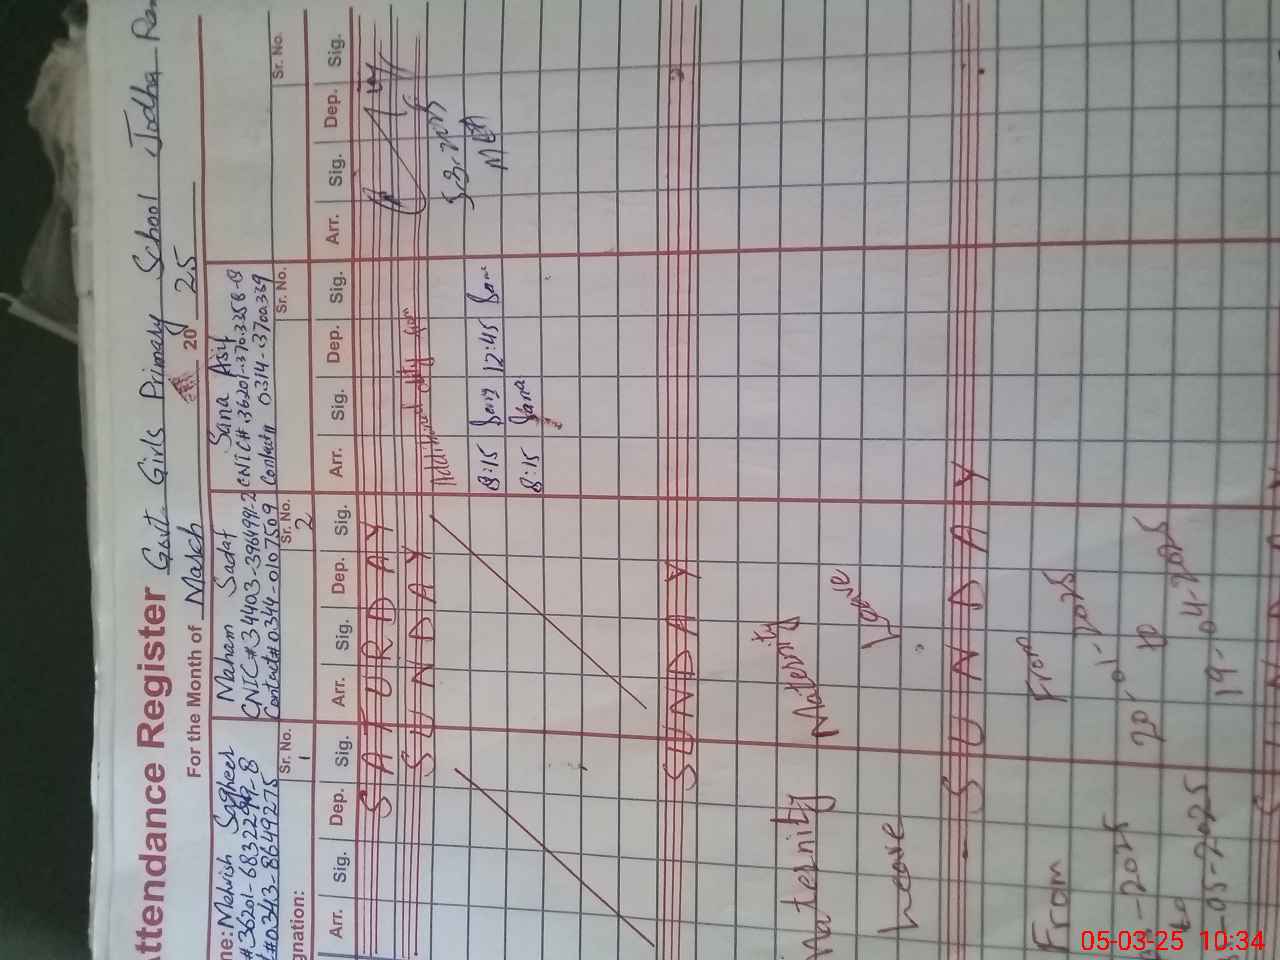 Attendance Register Govt. Girls Primary School Jodha
For the Month of March 20 25
Name: Mehvish Sagheer
#36201-6832299-8
#0343-8649275
Sr. No.
1
Maham Sadat
CNIC#34403-3964991-2
Contact#0344-0107509
Sr. No.
2
Sana Asif
CNIC#.36201-370.3258-8
Contact# 0314-3700339
Sr. No.
Sr. No.
gnation:
Arr. Sig. Dep. Sig. Arr. Sig. Dep. Sig. Arr. Sig. Dep. Sig. Arr. Sig. Dep. Sig.
SATURDAY
SUNDAY
Additional duty from
5-3-2025
8:15 12:45
8:15 Sana
SUNDAY
Maternity Maternity
Leave Leave
SUNDAY
From From
-2025 20-01-2025
to to
-05-2025 19-04-2025
SUNDAY
05-03-25 10:34